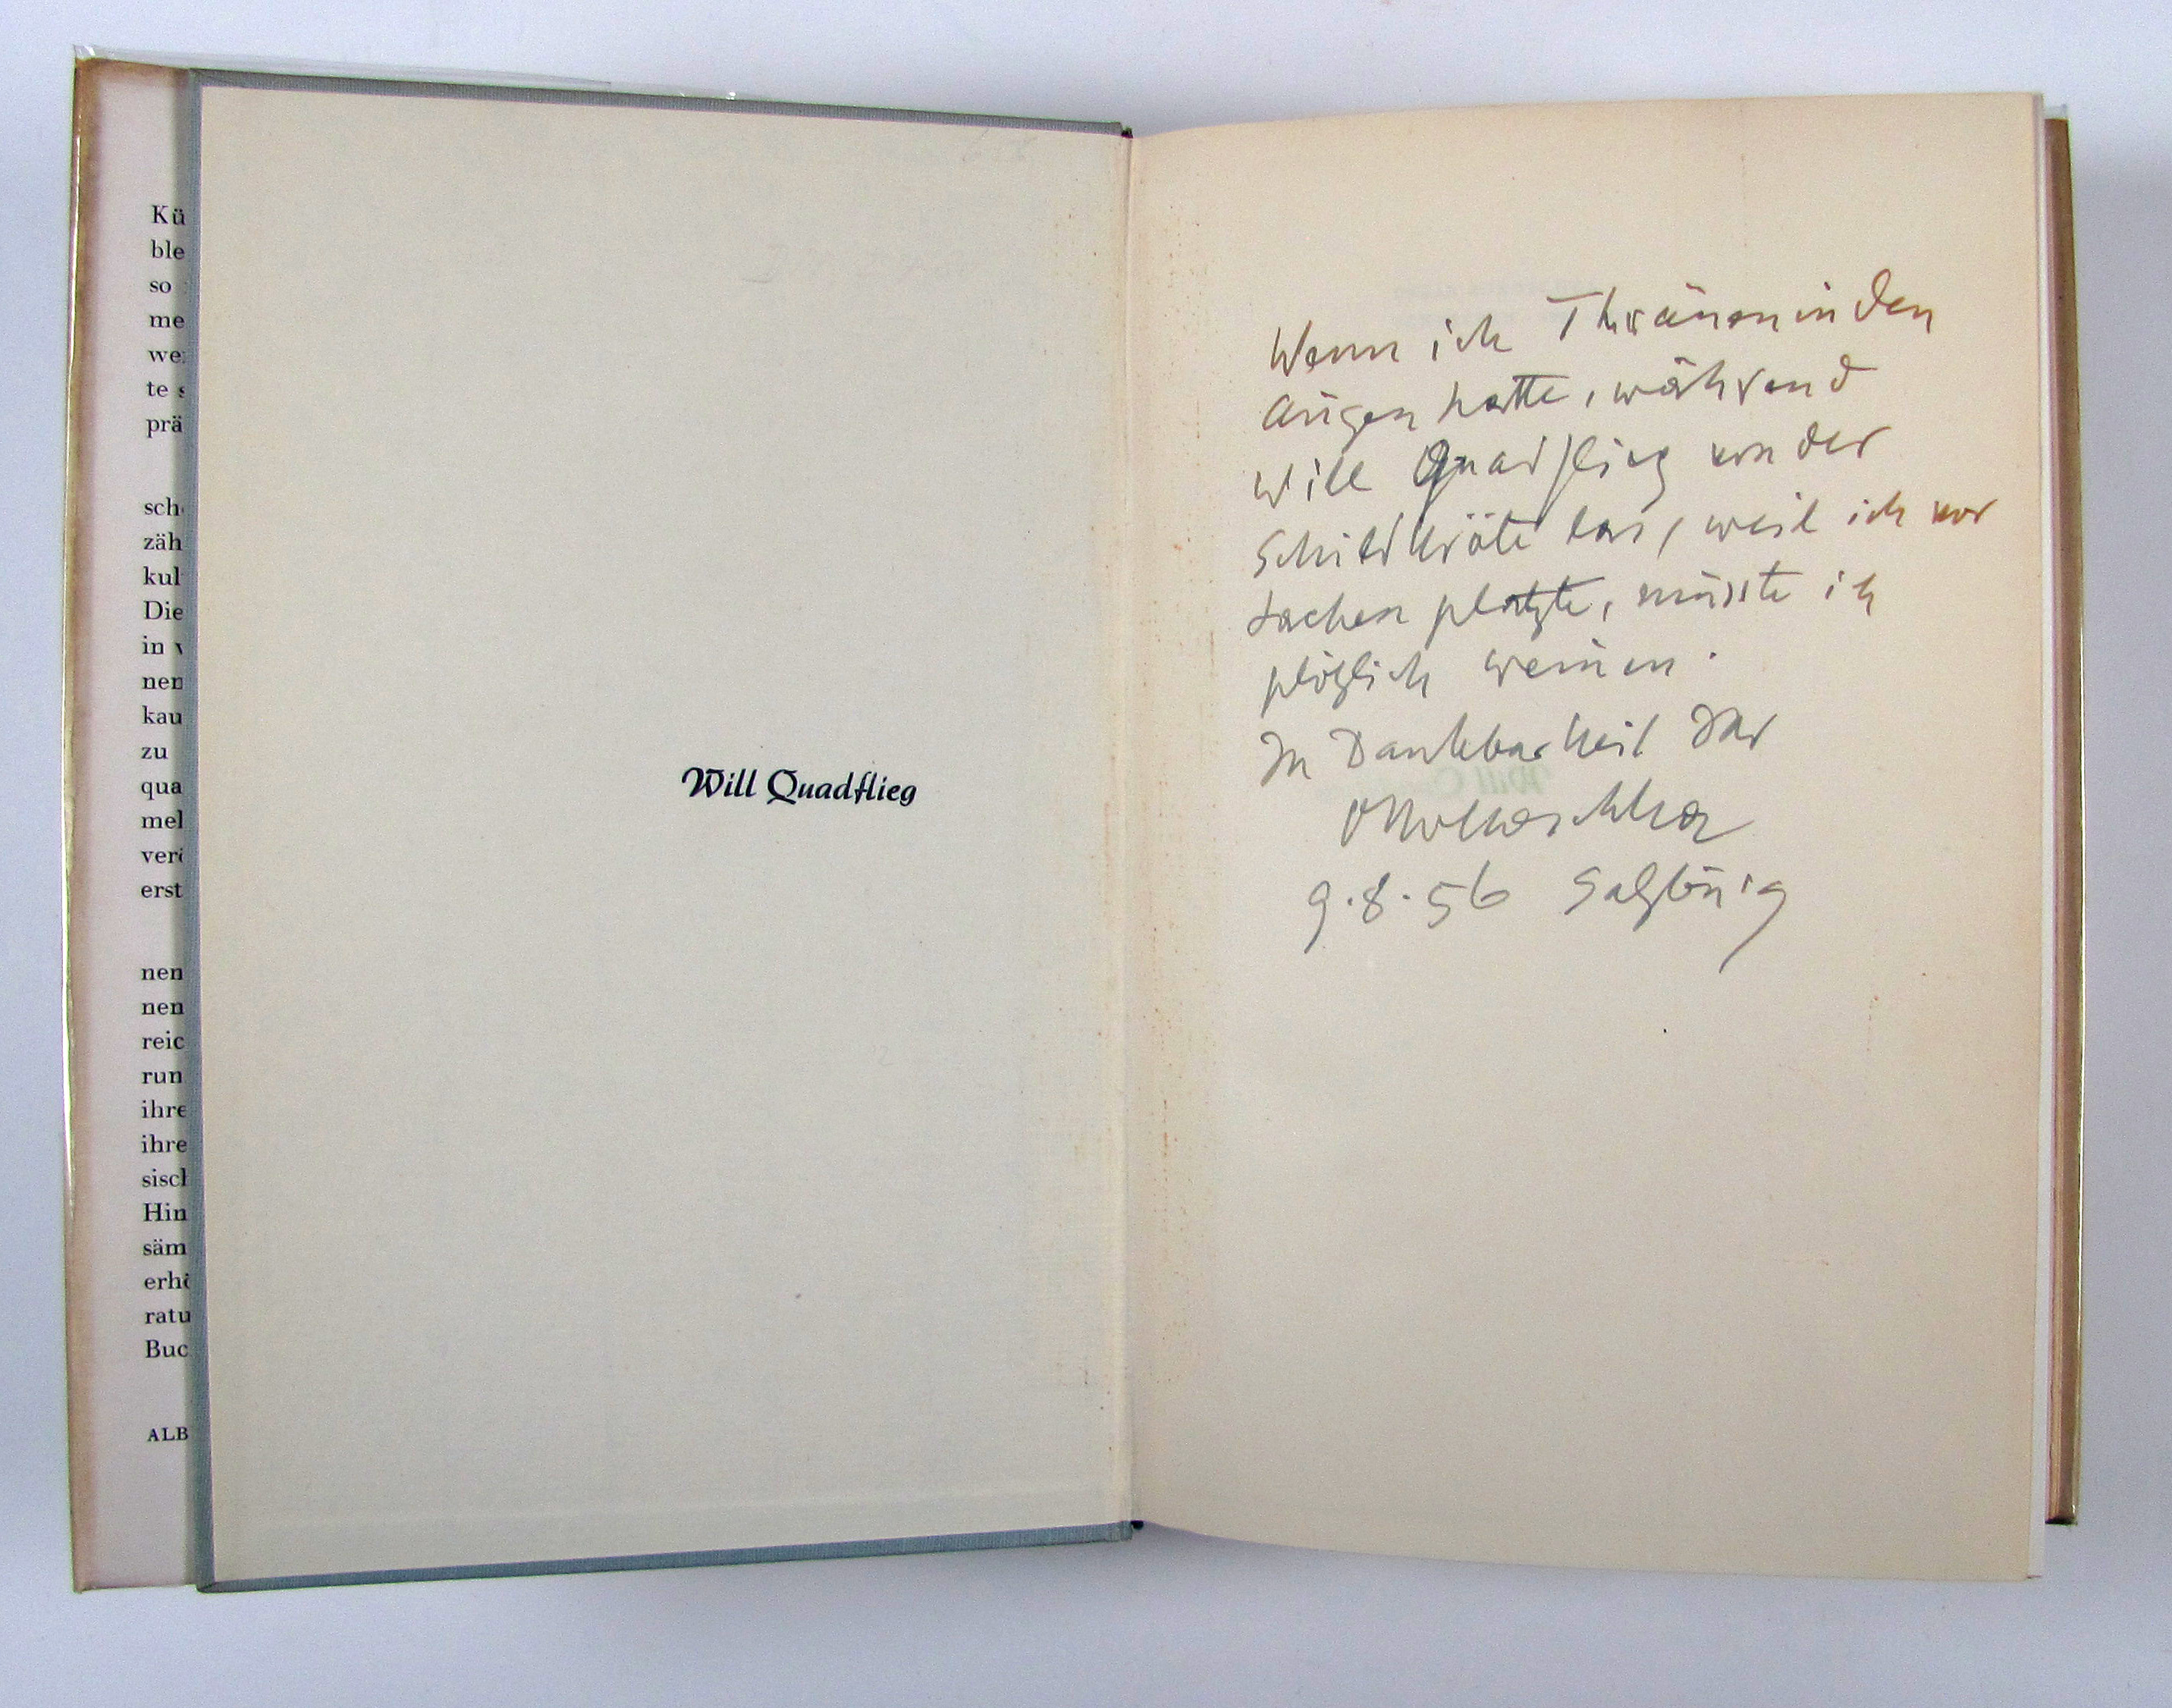 Kü
ble
so
me
we
te s
prä
sch
zäh
kul
Die
in v
nen
kau
zu
qua
mel
verö
erst
nen
nen
reic
run
ihre
ihre
sisch
Hin
säm
erhö
ratu
Buc
ALB
Will Quadflieg
Wenn ich Thränen in den
Augen hatte, während
Will Quadflieg von der
Schildkröte las, weil ich vor
Lachen platzte, müsste ich
plötzlich weinen.
In Dankbarkeit Ihr
OKokoschka
9.8.56 Salzburg